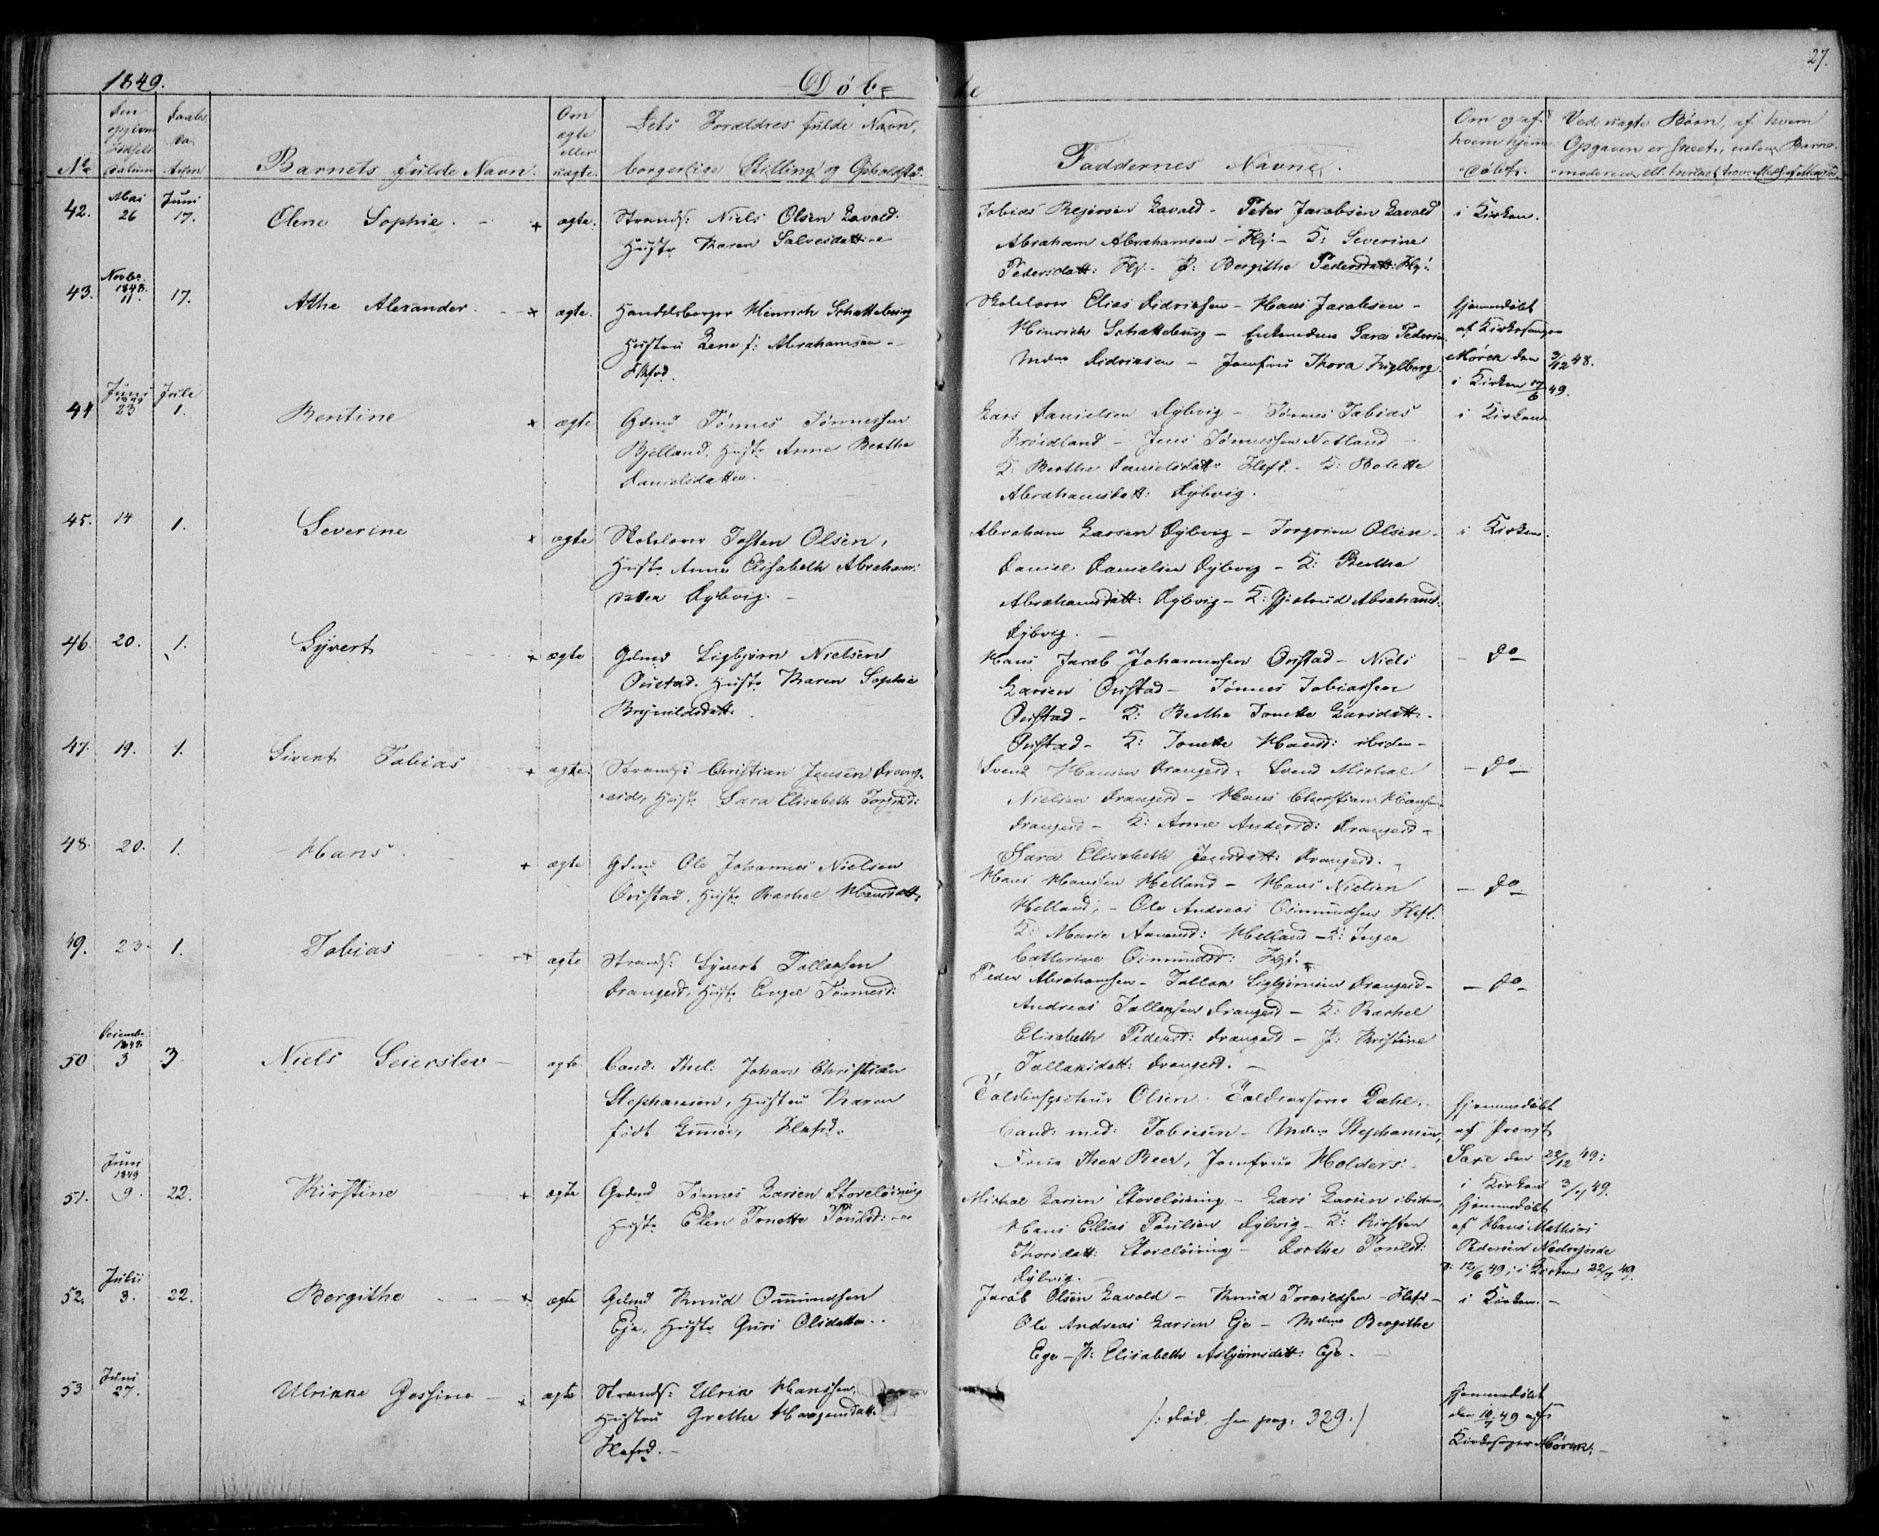 1849.
Døb-
te
27.
No
Den opgivne Fødsels Datum
Daabs Da-
Barnets fulde Navn.
Om ægte eller uægte.
Dets Forældres fulde Navn,
borgerlige Stilling og Opholdsted.
Faddernes Navne.
Om og af hvem hjemme-døbt.
Ved uægte Børn, af hvem
Opgaven er skeet, enten Barne-
42. Mai 26 Juni 17. Olene Sophie. + ægte. Strands: Niels Olsen Lavold.
Hustr. Karen Salvesdatter
Tobias Rejersen Lavold - Peter Jacobsen Lavold
Abraham Abrahamsen - Flg: - K: Severine
Pedersdatt: Flf. - P: Bergithe Pedersdatt: Flg:
i Kirken.
43. Novbr. 1848. 11. 17. Athe Alexander. + ægte. Handelsborger Hinrich Schatteburg
Hustru Lene f: Abrahamsen -
Flkfrd.
Skolelærer Elias Didriksen - Hans Jacobsen -
Hinrich Schatteburg - Enkemdme Sara Pedersen
Mdme Didriksen - Jomfru Thora
hjemmedøbt
af Kirkesanger
Mørck den 3/12 48.
i Kirken 17/6 49.
44 Juni 1849 23 Juli 1. Bentine + ægte Gdmd Tønnes Tønnessen
Bjelland, Hustr. Anne Berthe
Danielsdatter.
Lars Danielsen Dybvig - Tønnes Tobias
Frøidland - Jens Tønnessen Netland -
K. Berthe Danielsdatt: Flefd. - K: Bolette
Abrahamsdatt: Dybvig.
i Kirken
45. 14 1. Severine + ægte Skolelærer Tosten Olsen,
Hustr. Anne Elisabeth Abrahams:
datter Dybvig. -
Abraham Larsen Dybvig - Torgrim Olsen -
Daniel Danielsen Dybvig - K: Berthe
Abrahamsdatt: Dybvig - K: Gjertrud Abrahamsd.
Dybvig. -
i Kirken.
46. 20. 1. Syvert + ægte Gdmd Sigbjørn Nielsen
Ouestad. Hustr. Karen Sophie
Brynildsdatt:
Hans Jacob Johannesen Ouestad - Niels
Larsen Ouestad - Tønnes Tobiassen
Ouestad - K: Berthe Tonette Larsdatt: -
Ouestad - K: Tonette Hansd: ibiden -
- do -
47. 19. 1. Sivert Tobias + ægte. Strands: Christian Jensen Drang-
eid, Hustr. Sara Elisabeth Torgrd:
Svend Hansen Drangeid - Svend Michal
Nielsen Drangeid - Hans Christian Hansen
Drangeid - K: Anne Andersd: Drangeid -
Sara Elisabeth Jensdatt: Drangeid. -
- do -
48. 20. 1. Hans. + ægte Gdmd Ole Johannes Nielsen
Ouestad, Hustr. Rachel Hansdatt:
Hans Hansen Helland - Hans Nielsen
Helland, - Ole Andreas Osmundsen Flkf.
K: Marie Aanensd: Helland - K: Inger
Cathrine Osmundsd: Flgf.
- do -
49. 23. 1. Tobias + ægte Strands: Syvert Tollaksen
Drangeid, Hustr. Engel Tønnesd:
Peder Abrahamsen - Tollak Sigbjørnsen Drangeid -
Andreas Tollaksen Drangeid - K: Rachel
Elisabeth Pedersd: Drangeid - P: Kristine
Tollaksdatt: Drangeid. -
- do -
50 Decembr. 1848. 3 3. Niels Seierslev - ægte Cand. Theol: Johan Christian
Stephansen, Hustru Karen
født Lunøe, Flkfrd.
Toldinspecteur Olsen - Toldkasserer Dahl.
Cand: med: Tobiesen - Mdme Stephansen,
Frue Thea Beer, Jomfrue Holders.
hjemmedøbt
af Provst
Saxe den 22/12 49:
i Kirken 3/7 49.
51. Juni 1849 9. 22. Kirstine + ægte Gaardmd Tønnes Larsen Storeløining
Hustr. Elen Tonette Poulsd: -
Michal Larsen Storeløining - Lars Larsen ibiden,
Hans Elias Poulsen Dybvig - K: Kirsten
Thorsdatt: Storeløining - Dorthe Poulsd:
Dybvig. -
hjemmedøbt
af Hans Mathias
Pedersen Nedrejorde
d: 12/6 49; i Kirken 22/7 49.
52. Julii 3. 22. Bergithe + ægte Gdmd Knud Omundsen
Eje, Hustr. Guri Olsdatter.
Jacob Olsen Lavold - Knud Torkildsen - Flkf -
Ole Andreas Larsen Eje - Mdme Bergithe
Ege - P: Elisabeth Asbjørnsdatt: Eje. -
i Kirken. -
53 Juni 27. Ulrikke Gesine + ægte Strands: Ulrik Hanssen,
Hustru Grethe Haagensdatt.
Flkfrd. -
/: Død, see pag: 329 :/
hjemmedøbt
den 10/7 49 af
Kirkesanger Mørck. -